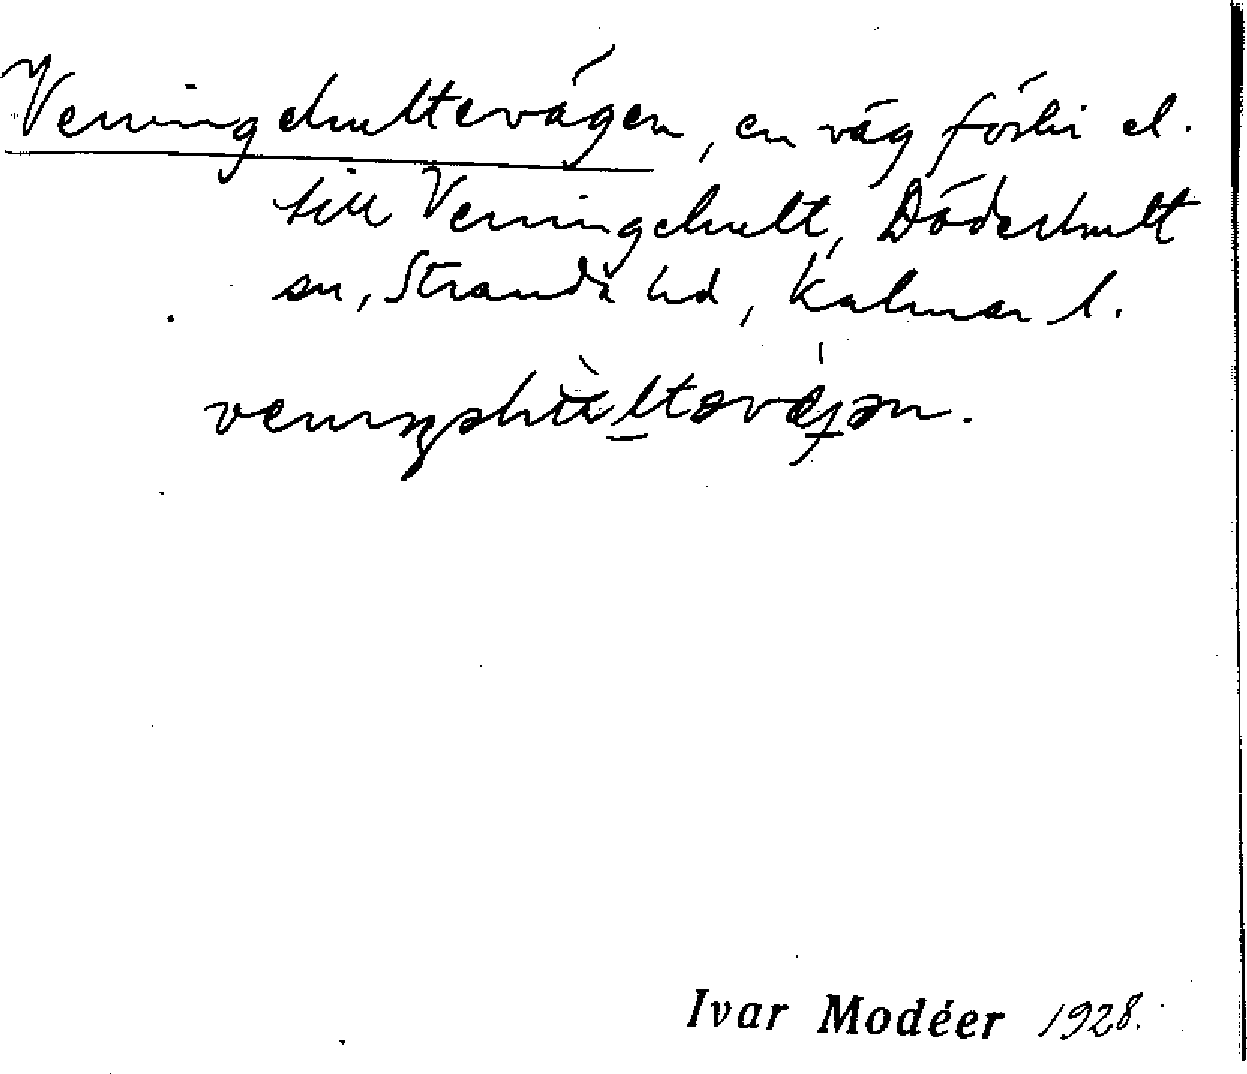 Venningehultevägen, en väg förbi el.
till Venningehult, Döderhult
sn, Stranda hd, Kalmar l.
Ivar Modéer 1928.